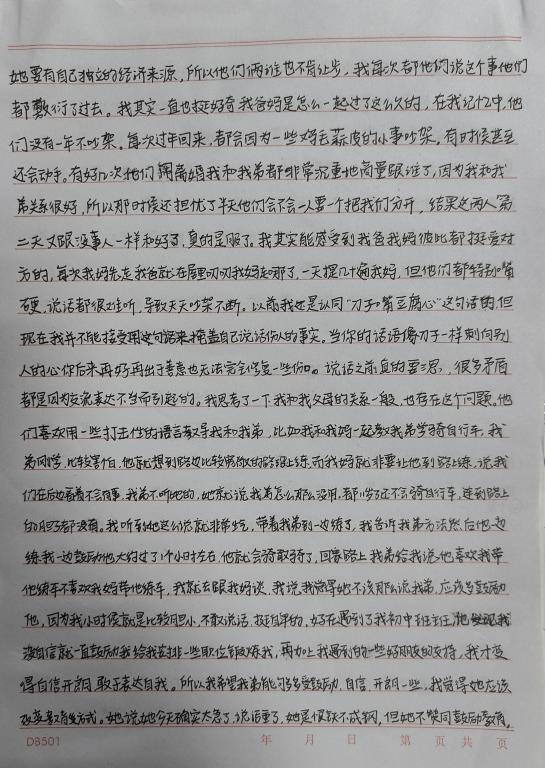 她要有自己独立的经济来源，所以他们俩谁也不肯让步，我每次都他们说这个事他们
都敷衍了过去。我其实一直也挺好奇我爸妈是怎么一起过了这么久的，在我记忆中，他
们没有一年不吵架。每次过年回来，都会因为一些鸡毛蒜皮的小事吵架。有时候甚至
还会动手。有好几次他们闹离婚我和我弟都非常沉重地商量跟谁了，因为我和我
弟关系很好，所以那时候还担忧了半天他们会不会一人要一个把我们分开，结果这两人第
二天又跟没事人一样和好了，真的是服了。我其实能感受到我爸我妈彼此都挺爱对
方的，每次我妈先走我爸就在屋里叨叨我妈走哪了，一天提几十遍我妈，但他们都特别嘴
硬，说话都很难听，导致天天吵架不断。以前我还是认同“刀子嘴豆腐心”这句话的，但
现在我并不能接受用这句话来掩盖自己说话伤人的事实。当你的话语像刀子一样刺向别
人的心你后来再好再出于善意也无法完全修复一些伤口。说话之前真的要三思，很多矛盾
都是因为该说表达不当而引起的。我思考了一下我和我父母的关系一般，也存在这个问题。他
们喜欢用一些打击性的语言教导我和我弟，比如我和我妈一起教我弟学骑自行车，我
弟刚学，比较害怕，他就想到路边比较宽敞的路段上练，而我妈就非要让他到路上练，说我
们在后边看着不会有事，我弟不听她的，她就说我弟怎么那么没用，都岁了还不会骑自行车，连到路上
的胆子都没有。我听到她这么说就非常生气，带着我弟到一边练了，我告诉我弟方法然后他一边
练我一边鼓励他大约过了1个小时左右，他就会骑敢骑了，回家路上我弟给我说他喜欢我带
他练车不喜欢我妈带他练车，我就去跟我妈谈，我说我觉得她不该那么说我弟，应该多鼓励
他，因为我小时候就是比较胆小，不敢说话，挺自卑的，好在遇到了我初中班主任，他发现我
没自信就一直鼓励我给我安排一些职位锻炼我，再加上我遇到的一些好朋友的支持，我才变
得自信开朗，敢于表达自我。所以我希望我弟能够多受鼓励，自信、开朗一些，我觉得她应该
改变教育方式。她说她今天确实太急了，说话重了，她是恨铁不成钢，但她不赞同鼓励教育。
DB501 年 月 日 第 页 共 页